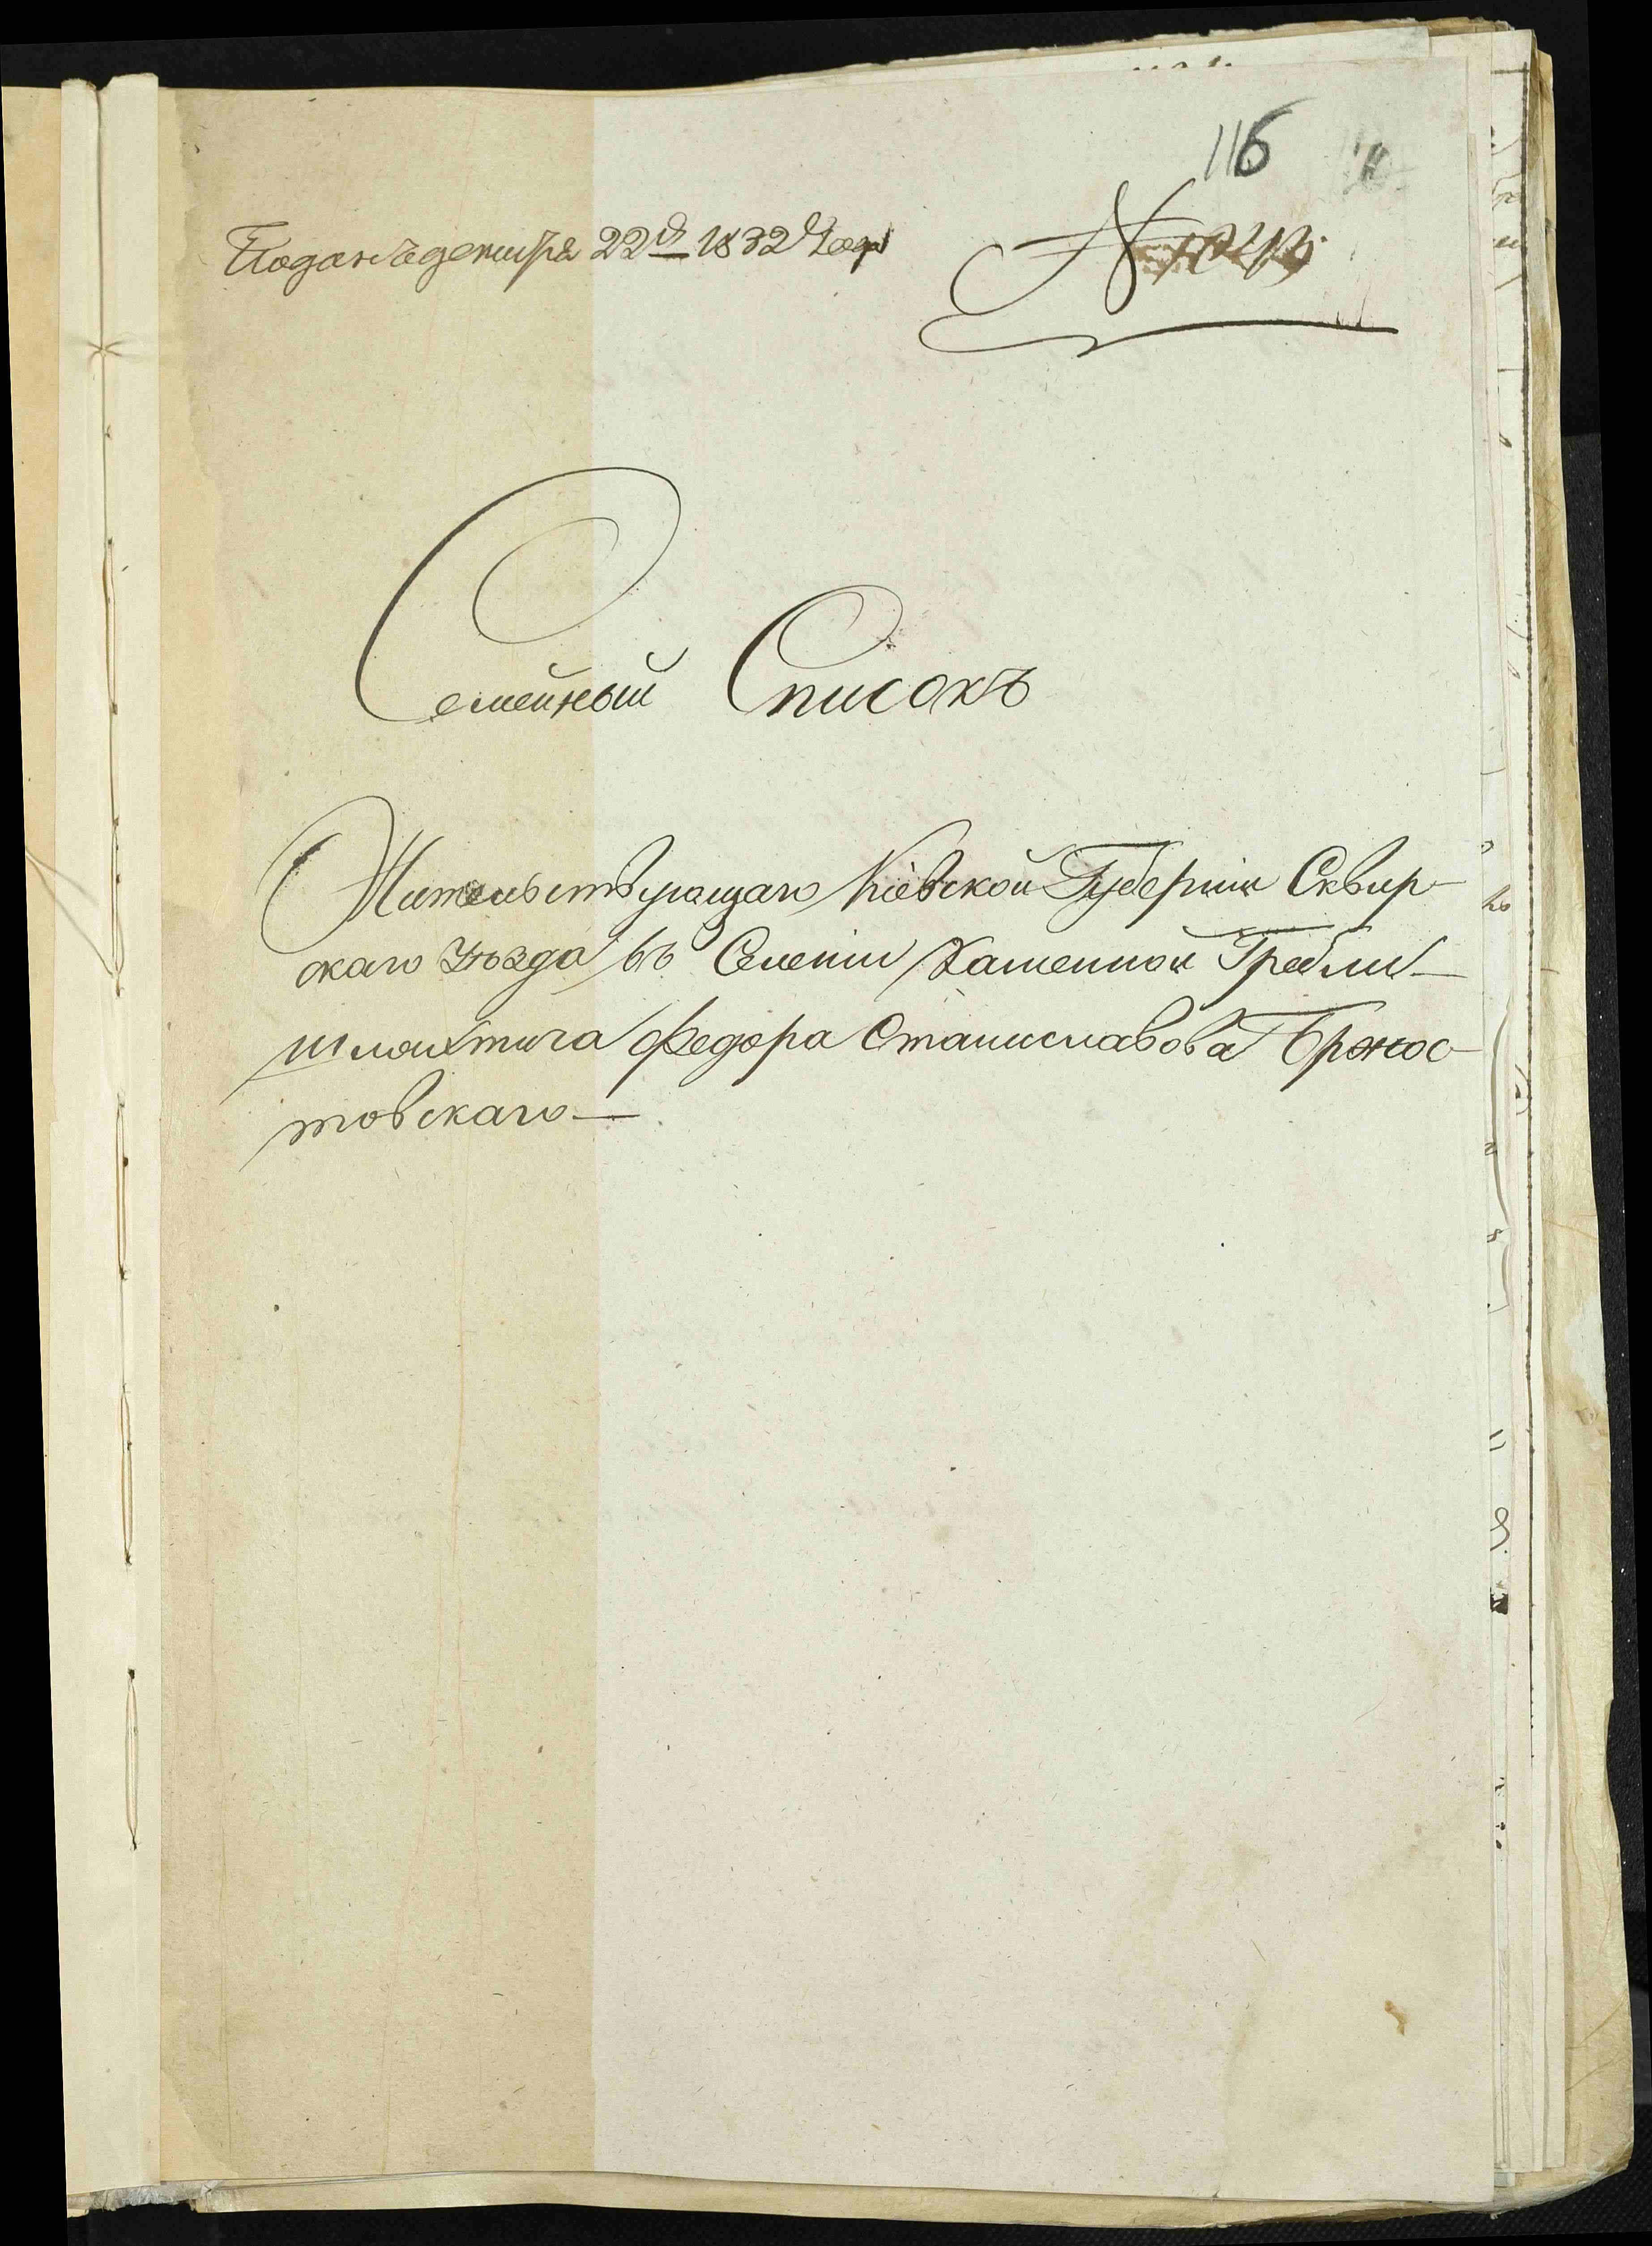 116
Поданъ декабря 22д 1832 Года
№
Семейный Списокъ
Жительствующаго Кіевской Губерніи Сквир-
скаго Уезда въ Селеніи Каменной Гребли
шляхтича Федора Станиславова Бржос-
товскаго